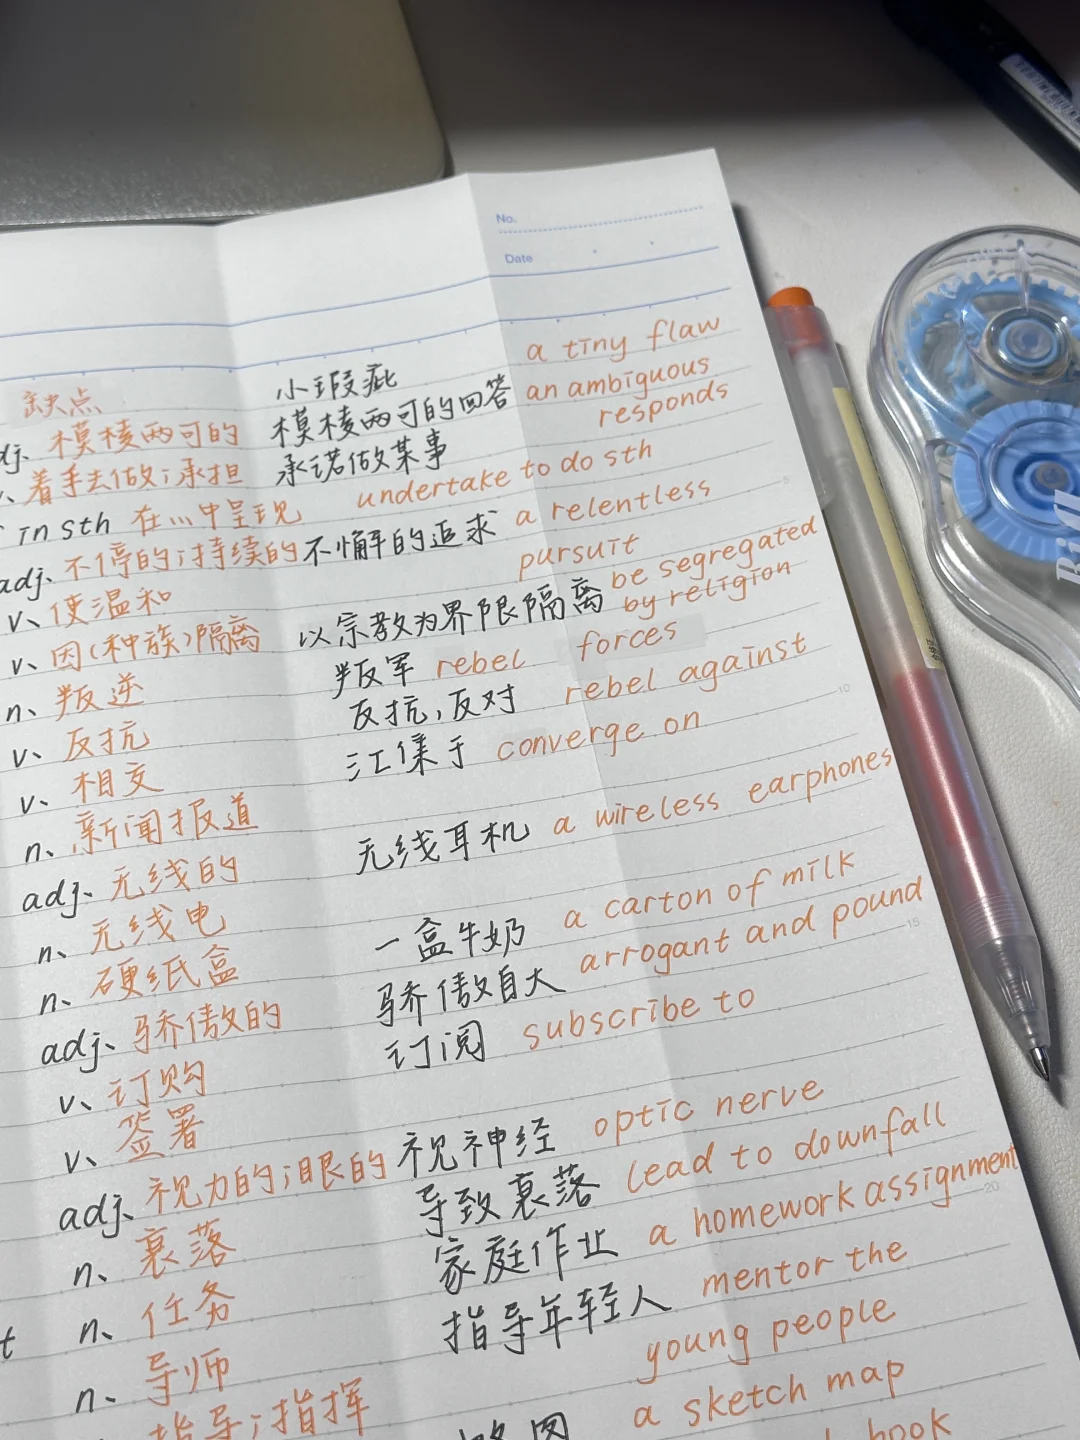 No.
Date
缺点 小瑕疵 a tiny flaw
dj、模棱两可的 模棱两可的回答 an ambiguous
responds
、着手去做；承担 承诺做某事
in sth 在…中呈现 undertake to do sth
adj、不停的；持续的 不懈的追求 a relentless
pursuit
v、使温和
v、因(种族)隔离 以宗教为界限隔离 be segregated
by religion
n、叛逆 叛军 rebel forces
v、反抗 反抗，反对 rebel against
v、相交 汇集于 converge on
n、新闻报道
adj、无线的 无线耳机 a wireless earphones
n、无线电
n、硬纸盒 一盒牛奶 a carton of milk
adj、骄傲的 骄傲自大 arrogant and pound
v、订购 订阅 subscribe to
v、签署
adj、视力的；眼的 视神经 optic nerve
n、衰落 导致衰落 lead to downfall
t n、任务 家庭作业 a homework assignment
n、导师 指导年轻人 mentor the
young people
指导；指挥 略图 a sketch map
book
5
10
15
20